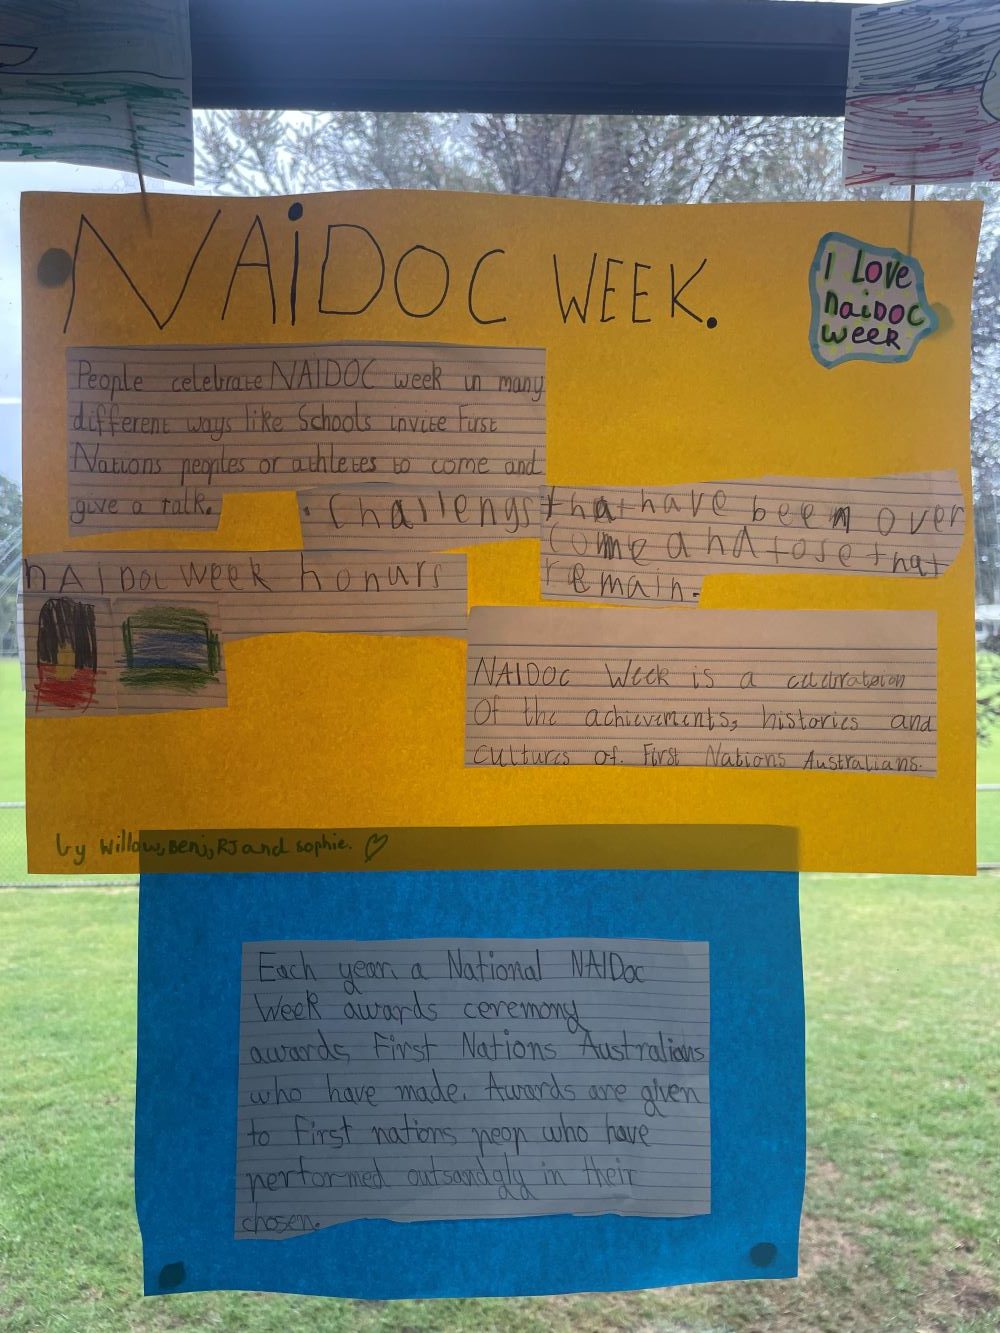 NAiDOC WEEK.
I Love
NaiDOC
week
People celebrate NAIDOC week in many
different ways like Schools invite First
Nations peoples or athletes to come and
give a talk.
NAIDOC week honurs
. Challengs that have been over
come and tose that
remain.
NAIDOC Week is a
of the achievements, histories and
cultures of First Nations Australians.
by Willow, Benj, RJ and sophie.
Each year a National NAIDoc
Week awards ceremony
awards First Nations Australians
who have made. Awards are given
to First nations peop who have
performed outsandgly in their
chosen.